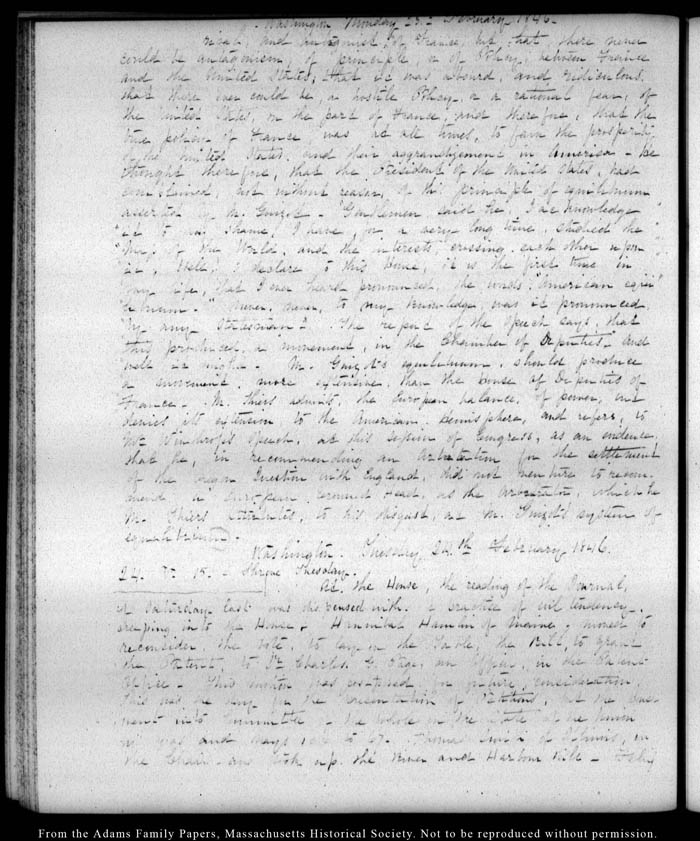 Washington Monday 23d February 1846.
rival, and antagonist, of France, but, that, there never
could be antagonism, of principle, or of Policy, between France
and the United States, that it was absurd, and ridiculous.
that there ever could be, a hostile Policy, or a rational fear, of
the United States, on the part of France, and therefore, that the
true policy of France was at all times, to favor the prosperity
of the United States, and their aggrandizement in America — He
thought therefore, that the President of the United States, had
complained, not without reason, of the principle of equilibrium
asserted by Mr. Guizot — "Gentlemen said he, I acknowledge
"it to my shame, I have, for a very long time, studied the
"Map of the World, and the interests, crossing each other upon
"it, Well; I declare to this House, it is the first time in
"my life, that I ever heard pronounced, the words: American equi-
"librium." Never, never, to my knowledge, was it pronounced,
by any Statesman." The report of the Speech says, that
this produced a movement, in the Chamber of Deputies, and
well it might. Mr. Guizot's equilibrium, should produce
a movement more extensive, than the house of Deputies of
France — M. Thiers admits, the European balance, of power, but
denies its extension to the American Hemisphere, and refers, to
Mr Winthrop's Speech, at this Session of Congress, as an evidence,
that he, in recommending an arbitration for the settlement
of the Oregon Question with England, did not venture to recom-
mend a European, crowned Head, as the Arbitrator, which he
M. Thiers attributes, to his disgust, at M. Guizot's system of
equilibrium.
Washington. Tuesday 24th February 1846.
24. V. 15. Shrove Tuesday.
At the House, the reading of the Journal,
of Saturday last was dispensed with. a practice of evil tendency.
creeping into the House — Hannibal Hamlin of Maine, moved to
reconsider the vote, to lay on the Table, the Bill, to grant
the Patent, to Dr Charles G. Page, an Officer, in the Patent
Office — This motion was postponed for future consideration
This was the day for the presentation of Petitions, but the House
went into Committee of the whole on the state of the Union
by yeas and Nays to 67. Thomas Smith of Illinois, in
the Chair — and took up the River and Harbour Bill —